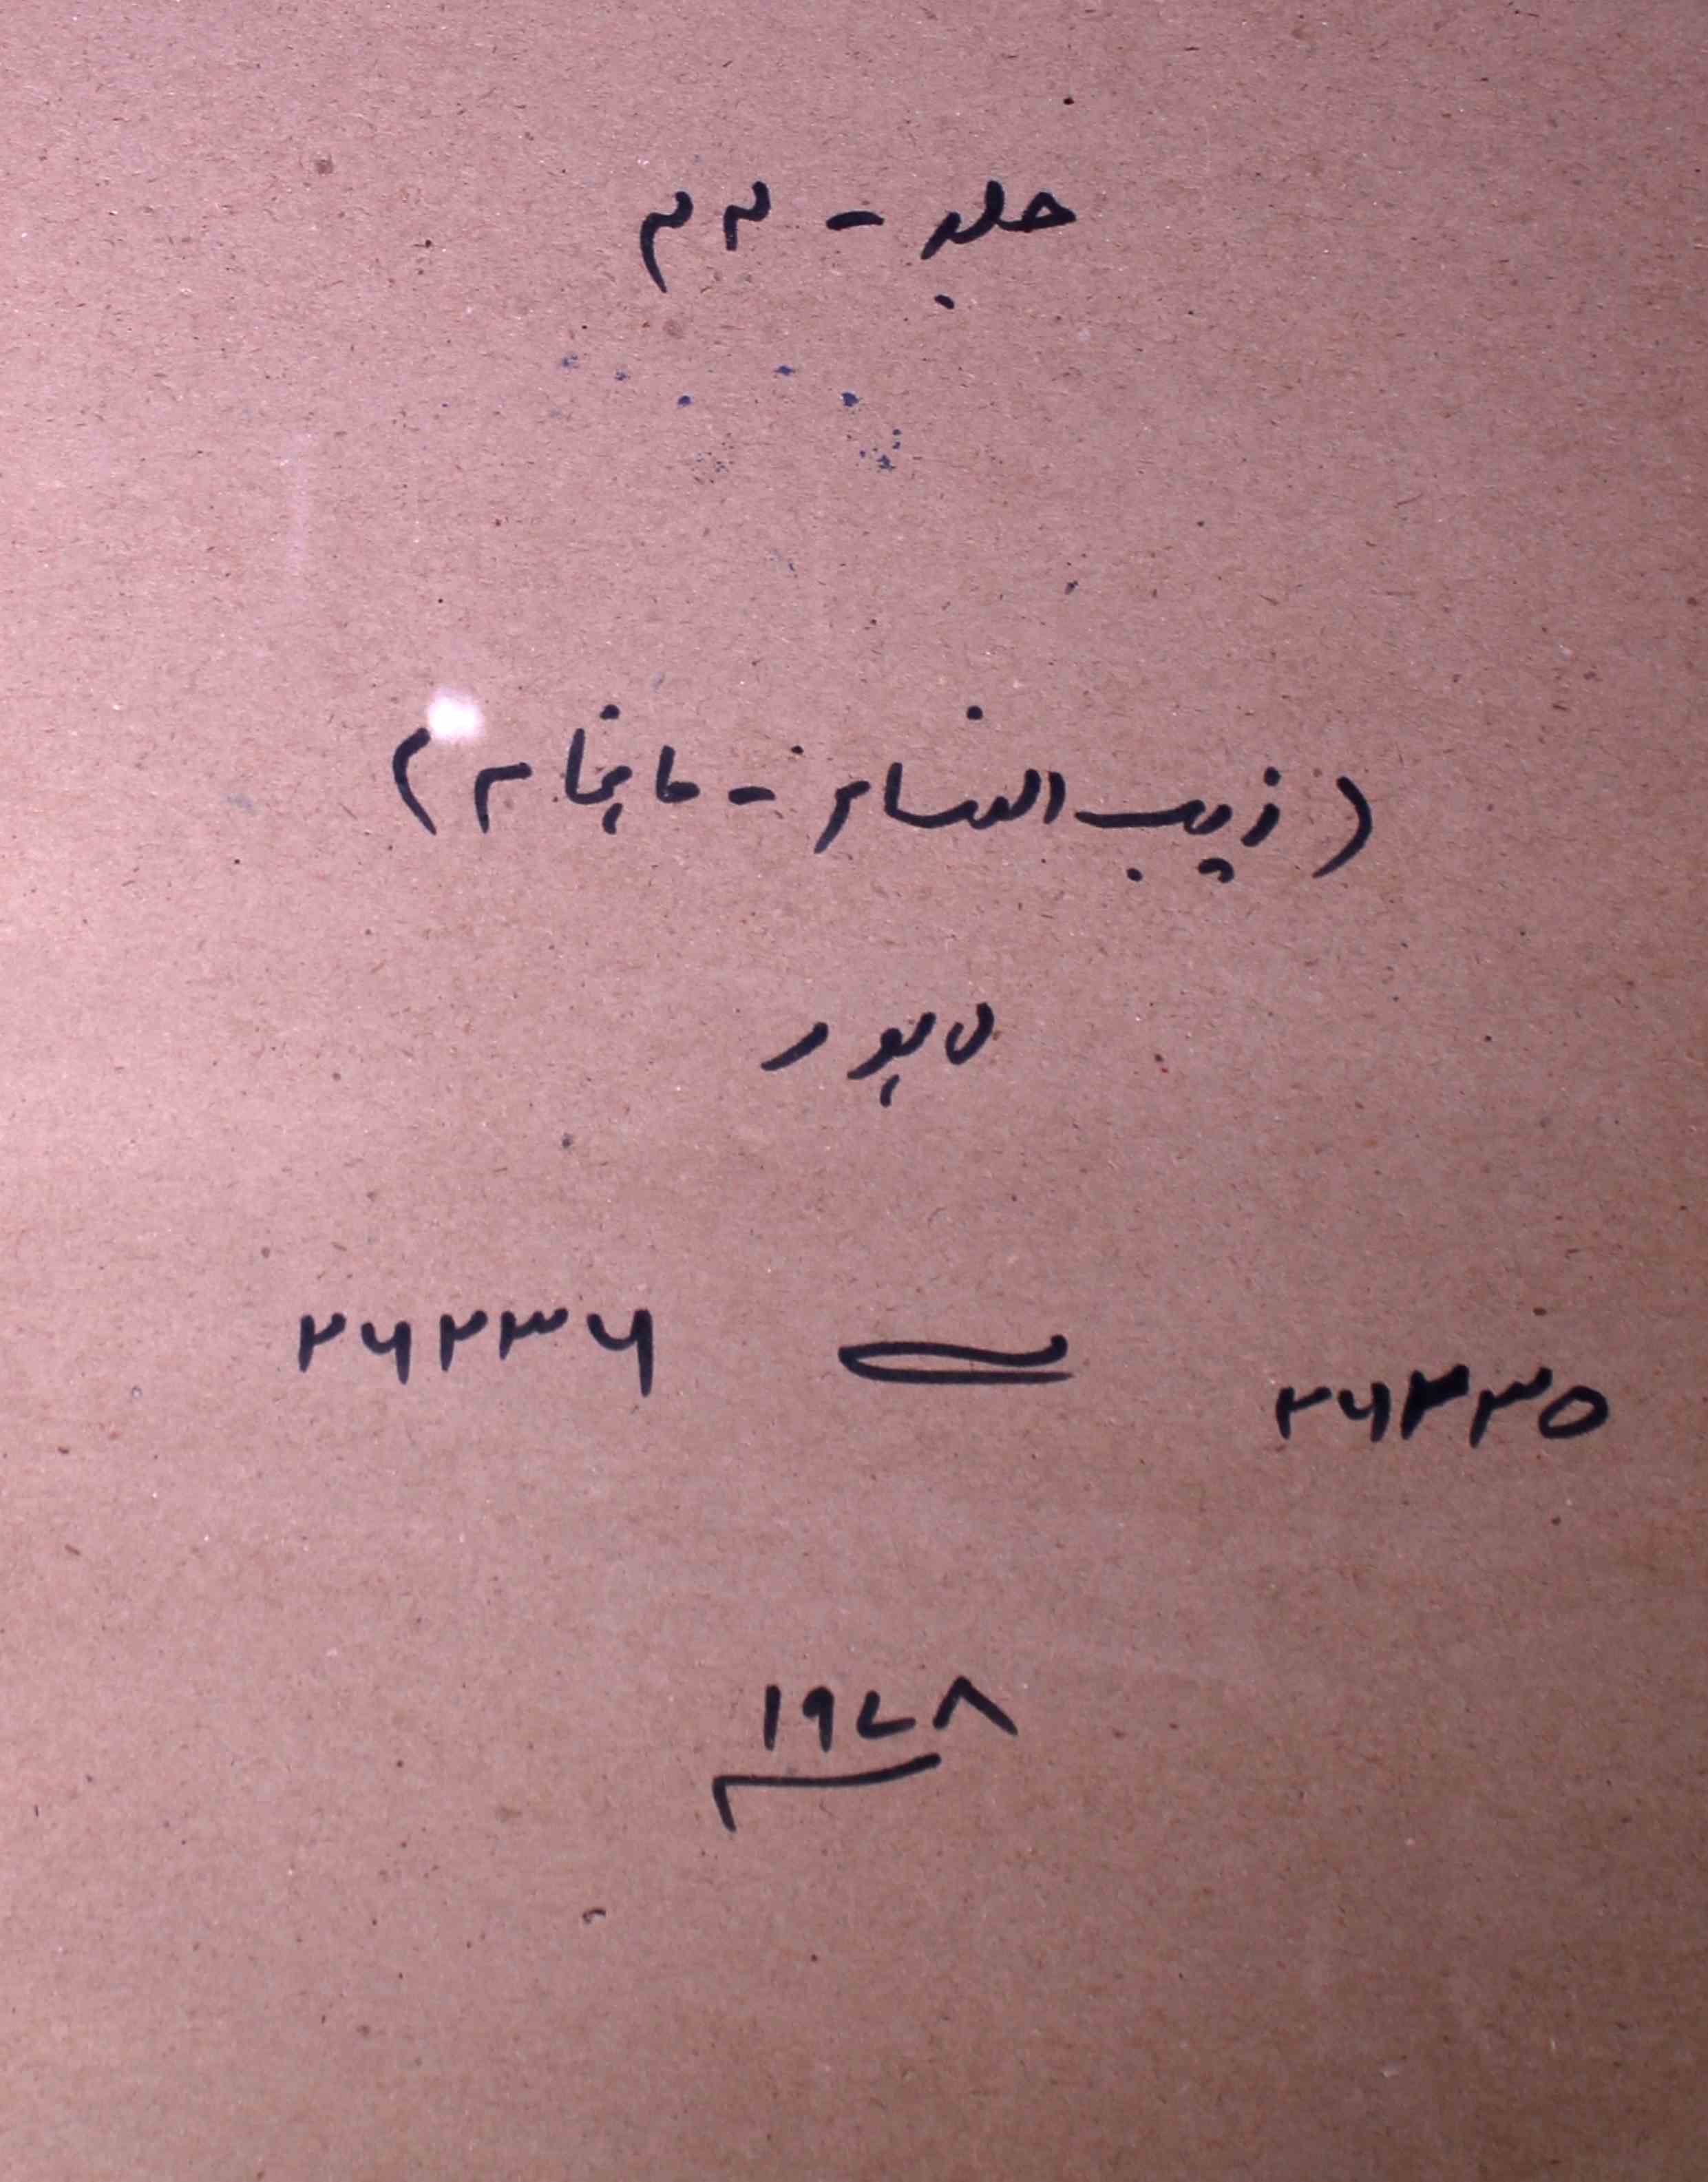 جلد - ۴۴
(زیب النساء - ماہنامہ)
لاہور
۲۶۲۳۵ سے ۲۶۲۳۶
۱۹۷۸